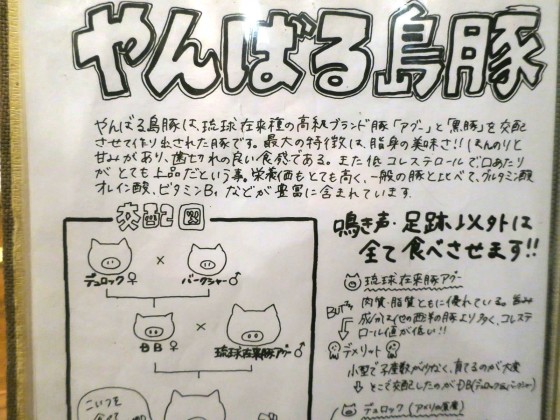 やんばる島豚
やんばる島豚は、琉球在来種の高級ブランド豚「アグー」と「黒豚」を交配
させて作り出された豚です。最大の特徴は、脂身の美味さ!!ほんのりと
甘みがあり、歯切れの良い食感である。また低コレステロールで口あたり
がとても上品だという事。栄養価もとても高く、一般の豚と比べて、グルタミン酸
オレイン酸、ビタミンB₁などが豊富に含まれています。
交配図
デュロック♀ × バークシャー♂
DB♀ × 琉球在来豚アグー♂
こいつを
食べて
鳴き声・足跡以外は
全て食べさせます!!
琉球在来豚アグー
肉質・脂質ともに優れている。旨み
成分は他の西洋の豚より多く、コレステ
ロール値が低い!!
BUT
デメリット
小型で子産数が少なく、育てるのが大変
そこで交配したのがDB(デュロック
デュロック(アメリカ原産)